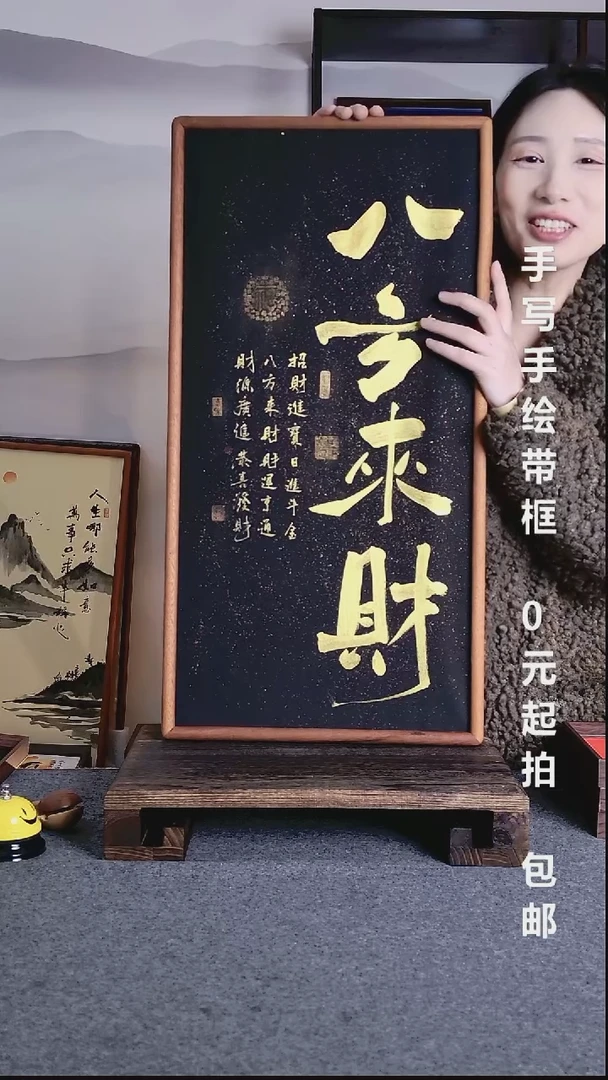 八方來財
招財進寶日進斗金
八方來財財運亨通
財源廣進恭喜發財
人生哪能多如意
萬事只求半稱心
手写手绘带框 0元起拍 包邮